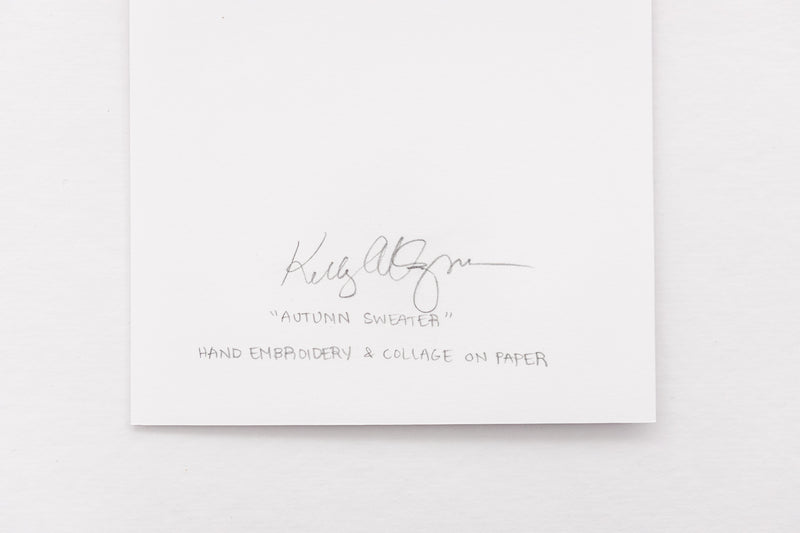 Kelly
"AUTUMN SWEATER"
HAND EMBROIDERY & COLLAGE ON PAPER